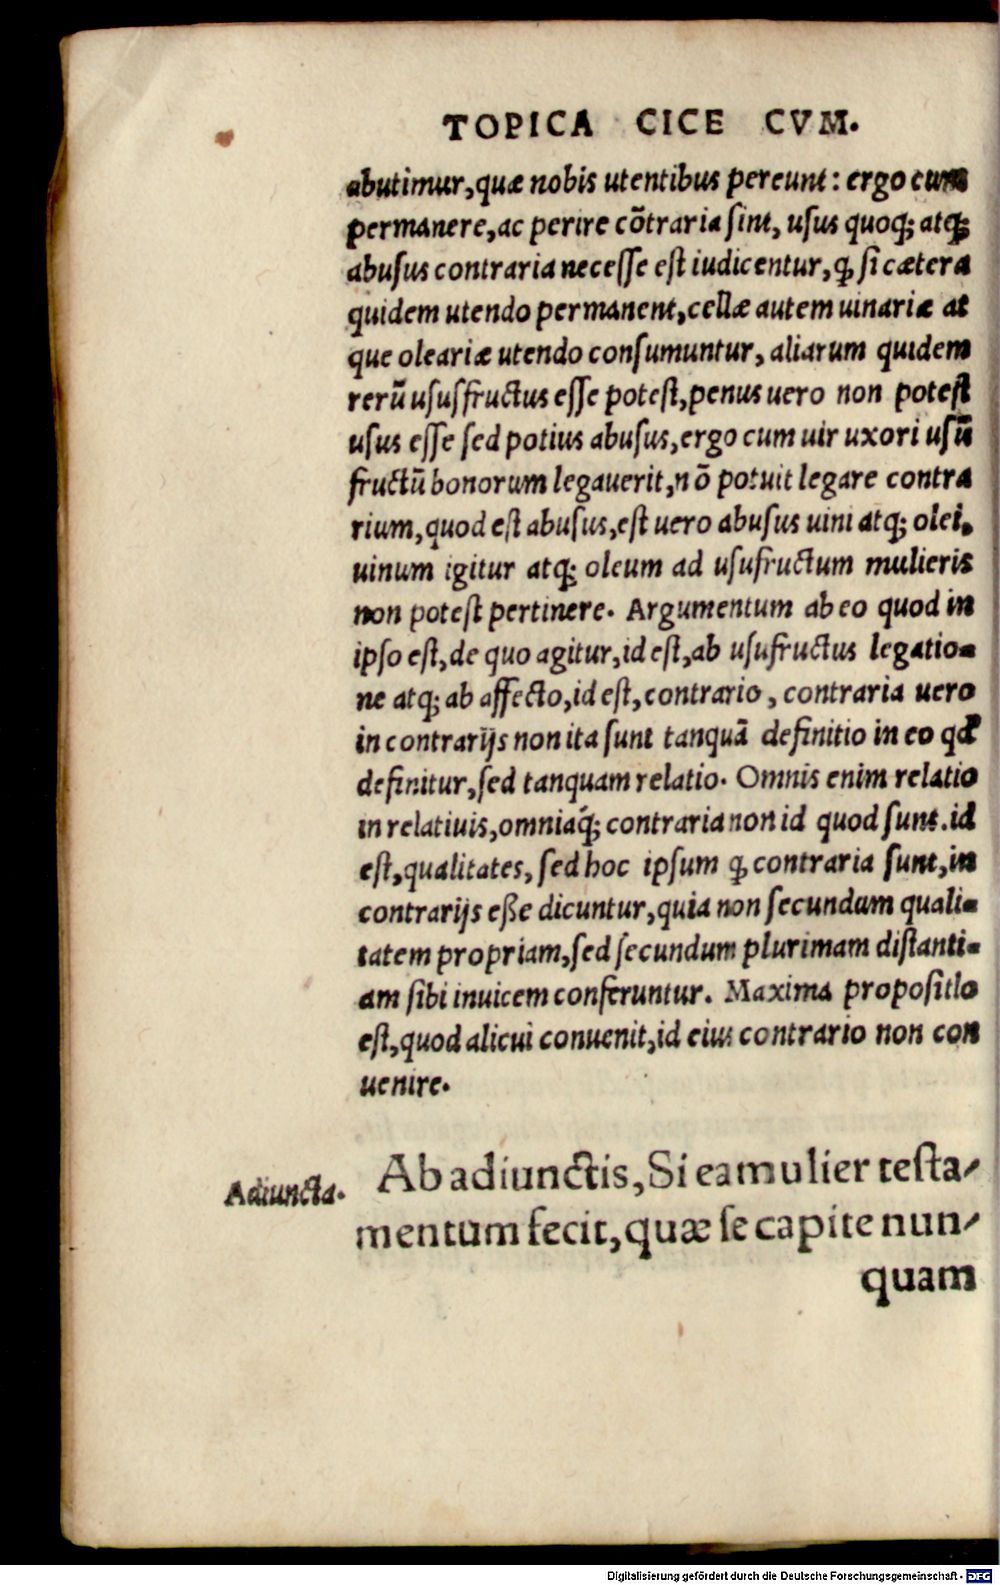 TOPICA CICE CVM.
abutimur, quæ nobis utentibus pereunt: ergo cum
permanere, ac perire cōtraria sint, usus quoq; atq;
abusus contraria necesse est iudicentur, ꝙ si cætera
quidem utendo permanent, cellæ autem uinariæ at
que oleariæ utendo consumuntur, aliarum quidem
rerū ususfructus esse potest, penus uero non potest
usus esse sed potius abusus, ergo cum uir uxori usū
fructū bonorum legauerit, nō potuit legare contra
rium, quod est abusus, est uero abusus uini atq; olei.
uinum igitur atq; oleum ad usufructum mulieris
non potest pertinere. Argumentum ab eo quod in
ipso est, de quo agitur, id est, ab usufructus legatio-
ne atq; ab affecto, id est, contrario, contraria uero
in contrarijs non ita sunt tanquā definitio in eo qd
definitur, sed tanquam relatio. Omnis enim relatio
in relatiuis, omniaq́; contraria non id quod sunt. id
est, qualitates, sed hoc ipsum ꝙ contraria sunt, in
contrarijs eße dicuntur, quia non secundum quali-
tatem propriam, sed secundum plurimam distanti-
am sibi inuicem conferuntur. Maxima propositIo
est, quod alicui conuenit, id eius contrario non con
uenire.
Adiuncta.
Ab adiunctis, Si ea mulier testa-
mentum fecit, quæ se capite nun-
quam
Digitalisierung gefördert durch die Deutsche Forschungsgemeinschaft - DFG